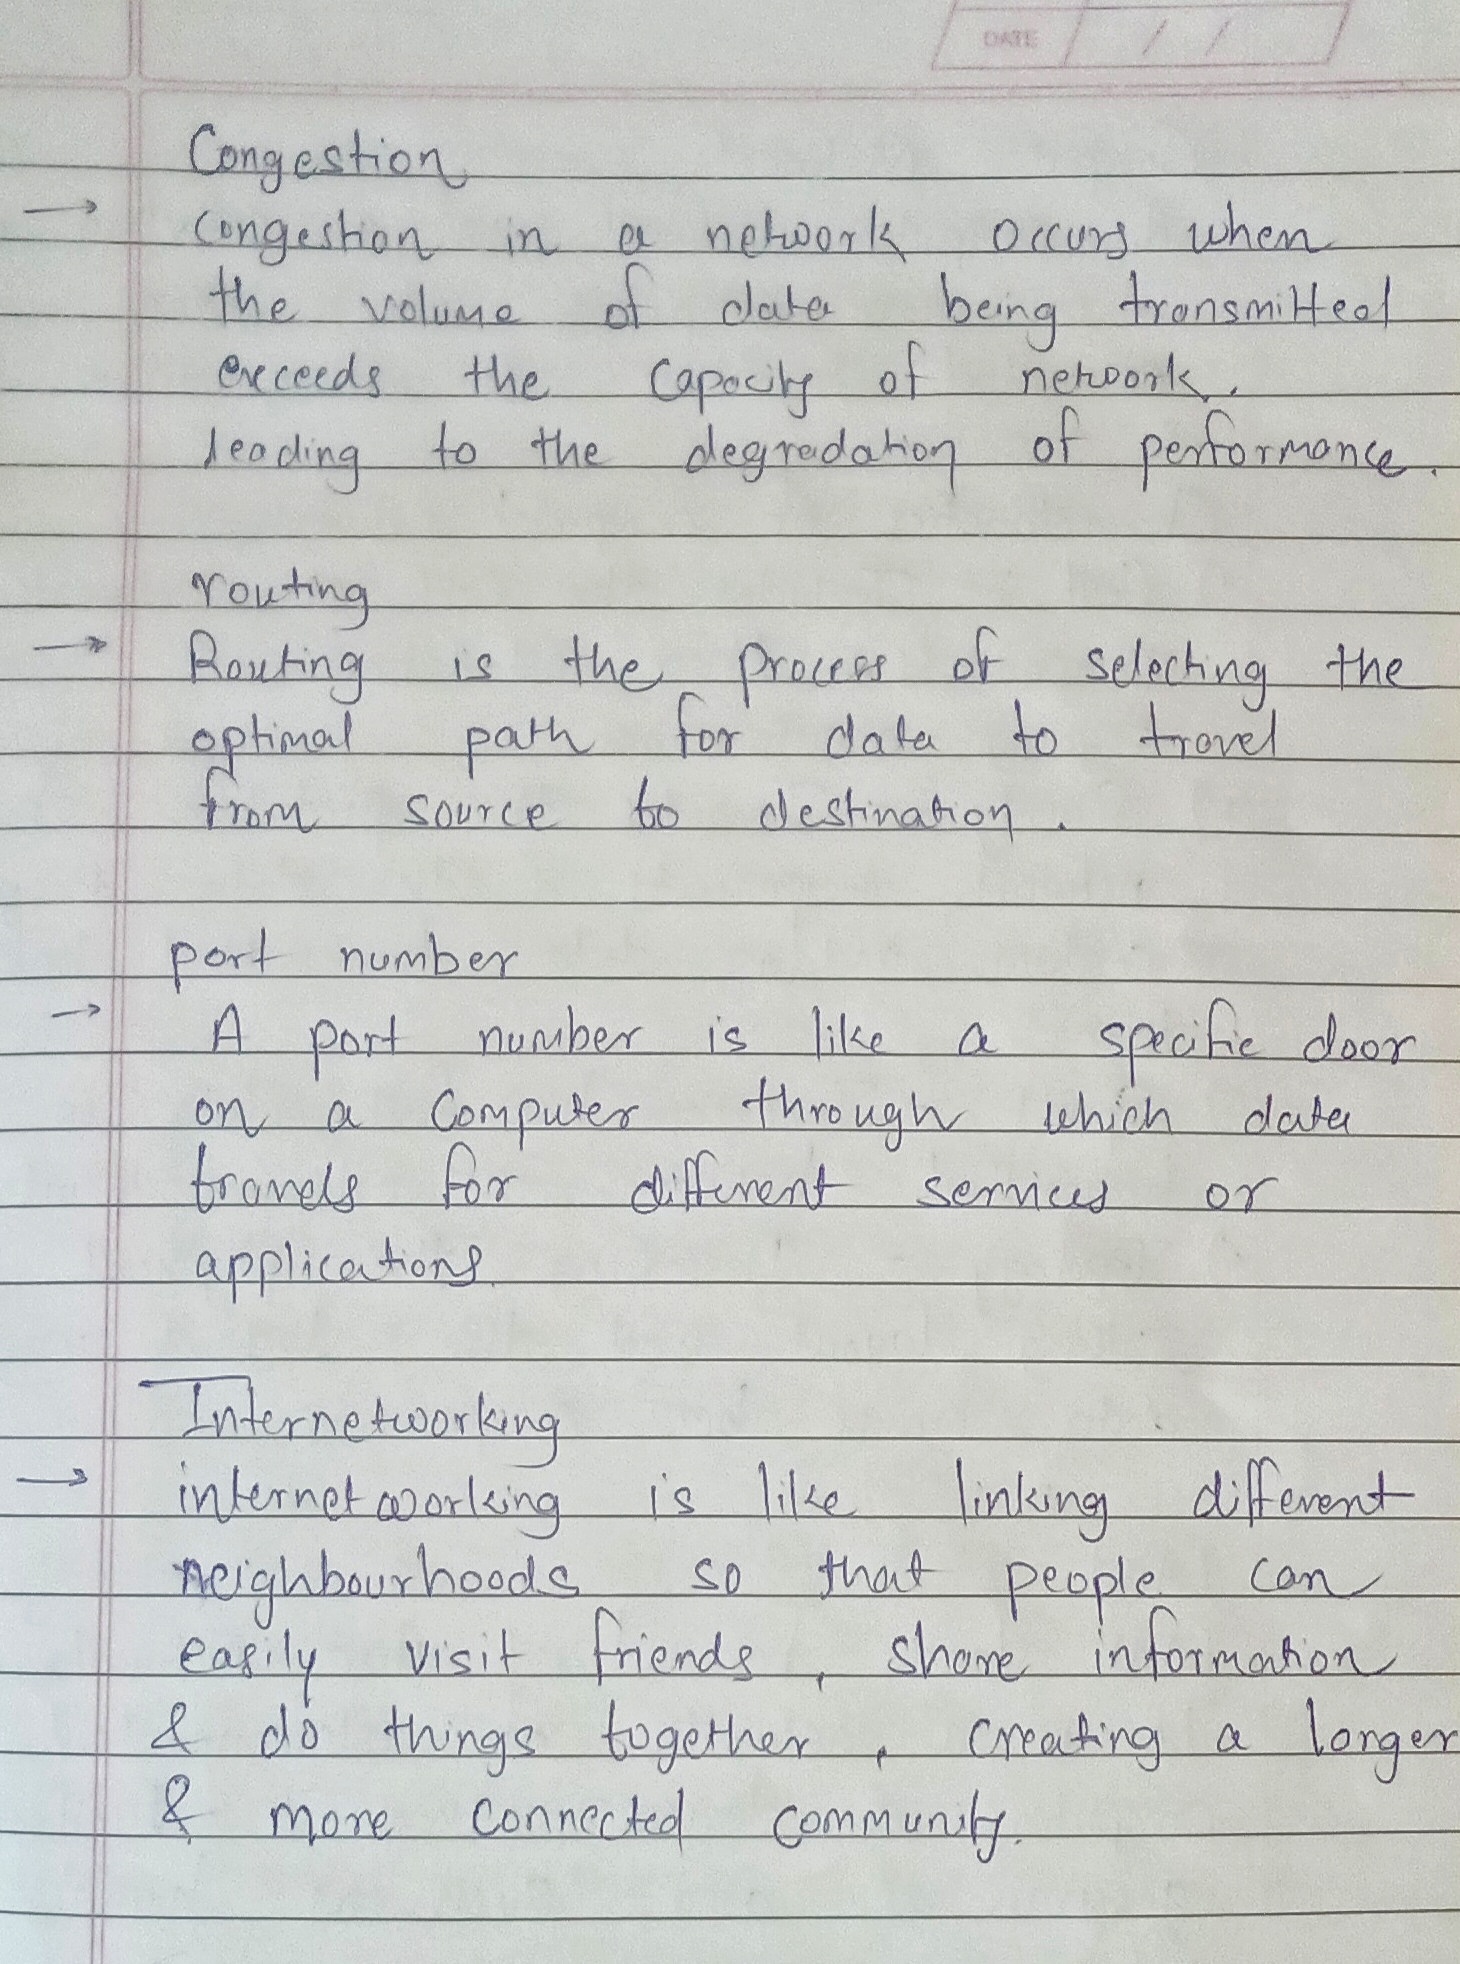 DATE / /
Congestion
→ Congestion in a network occurs when
the volume of data being transmitted
exceeds the capacity of network.
leading to the degradation of performance.
routing
→ Routing is the process of selecting the
optimal path for data to travel
from source to destination.
port number
→ A port number is like a specific door
on a computer through which data
travels for different services or
applications.
Internetworking
→ internetworking is like linking different
neighbourhoods so that people can
easily visit friends, share information
& do things together, creating a larger
& more connected community.